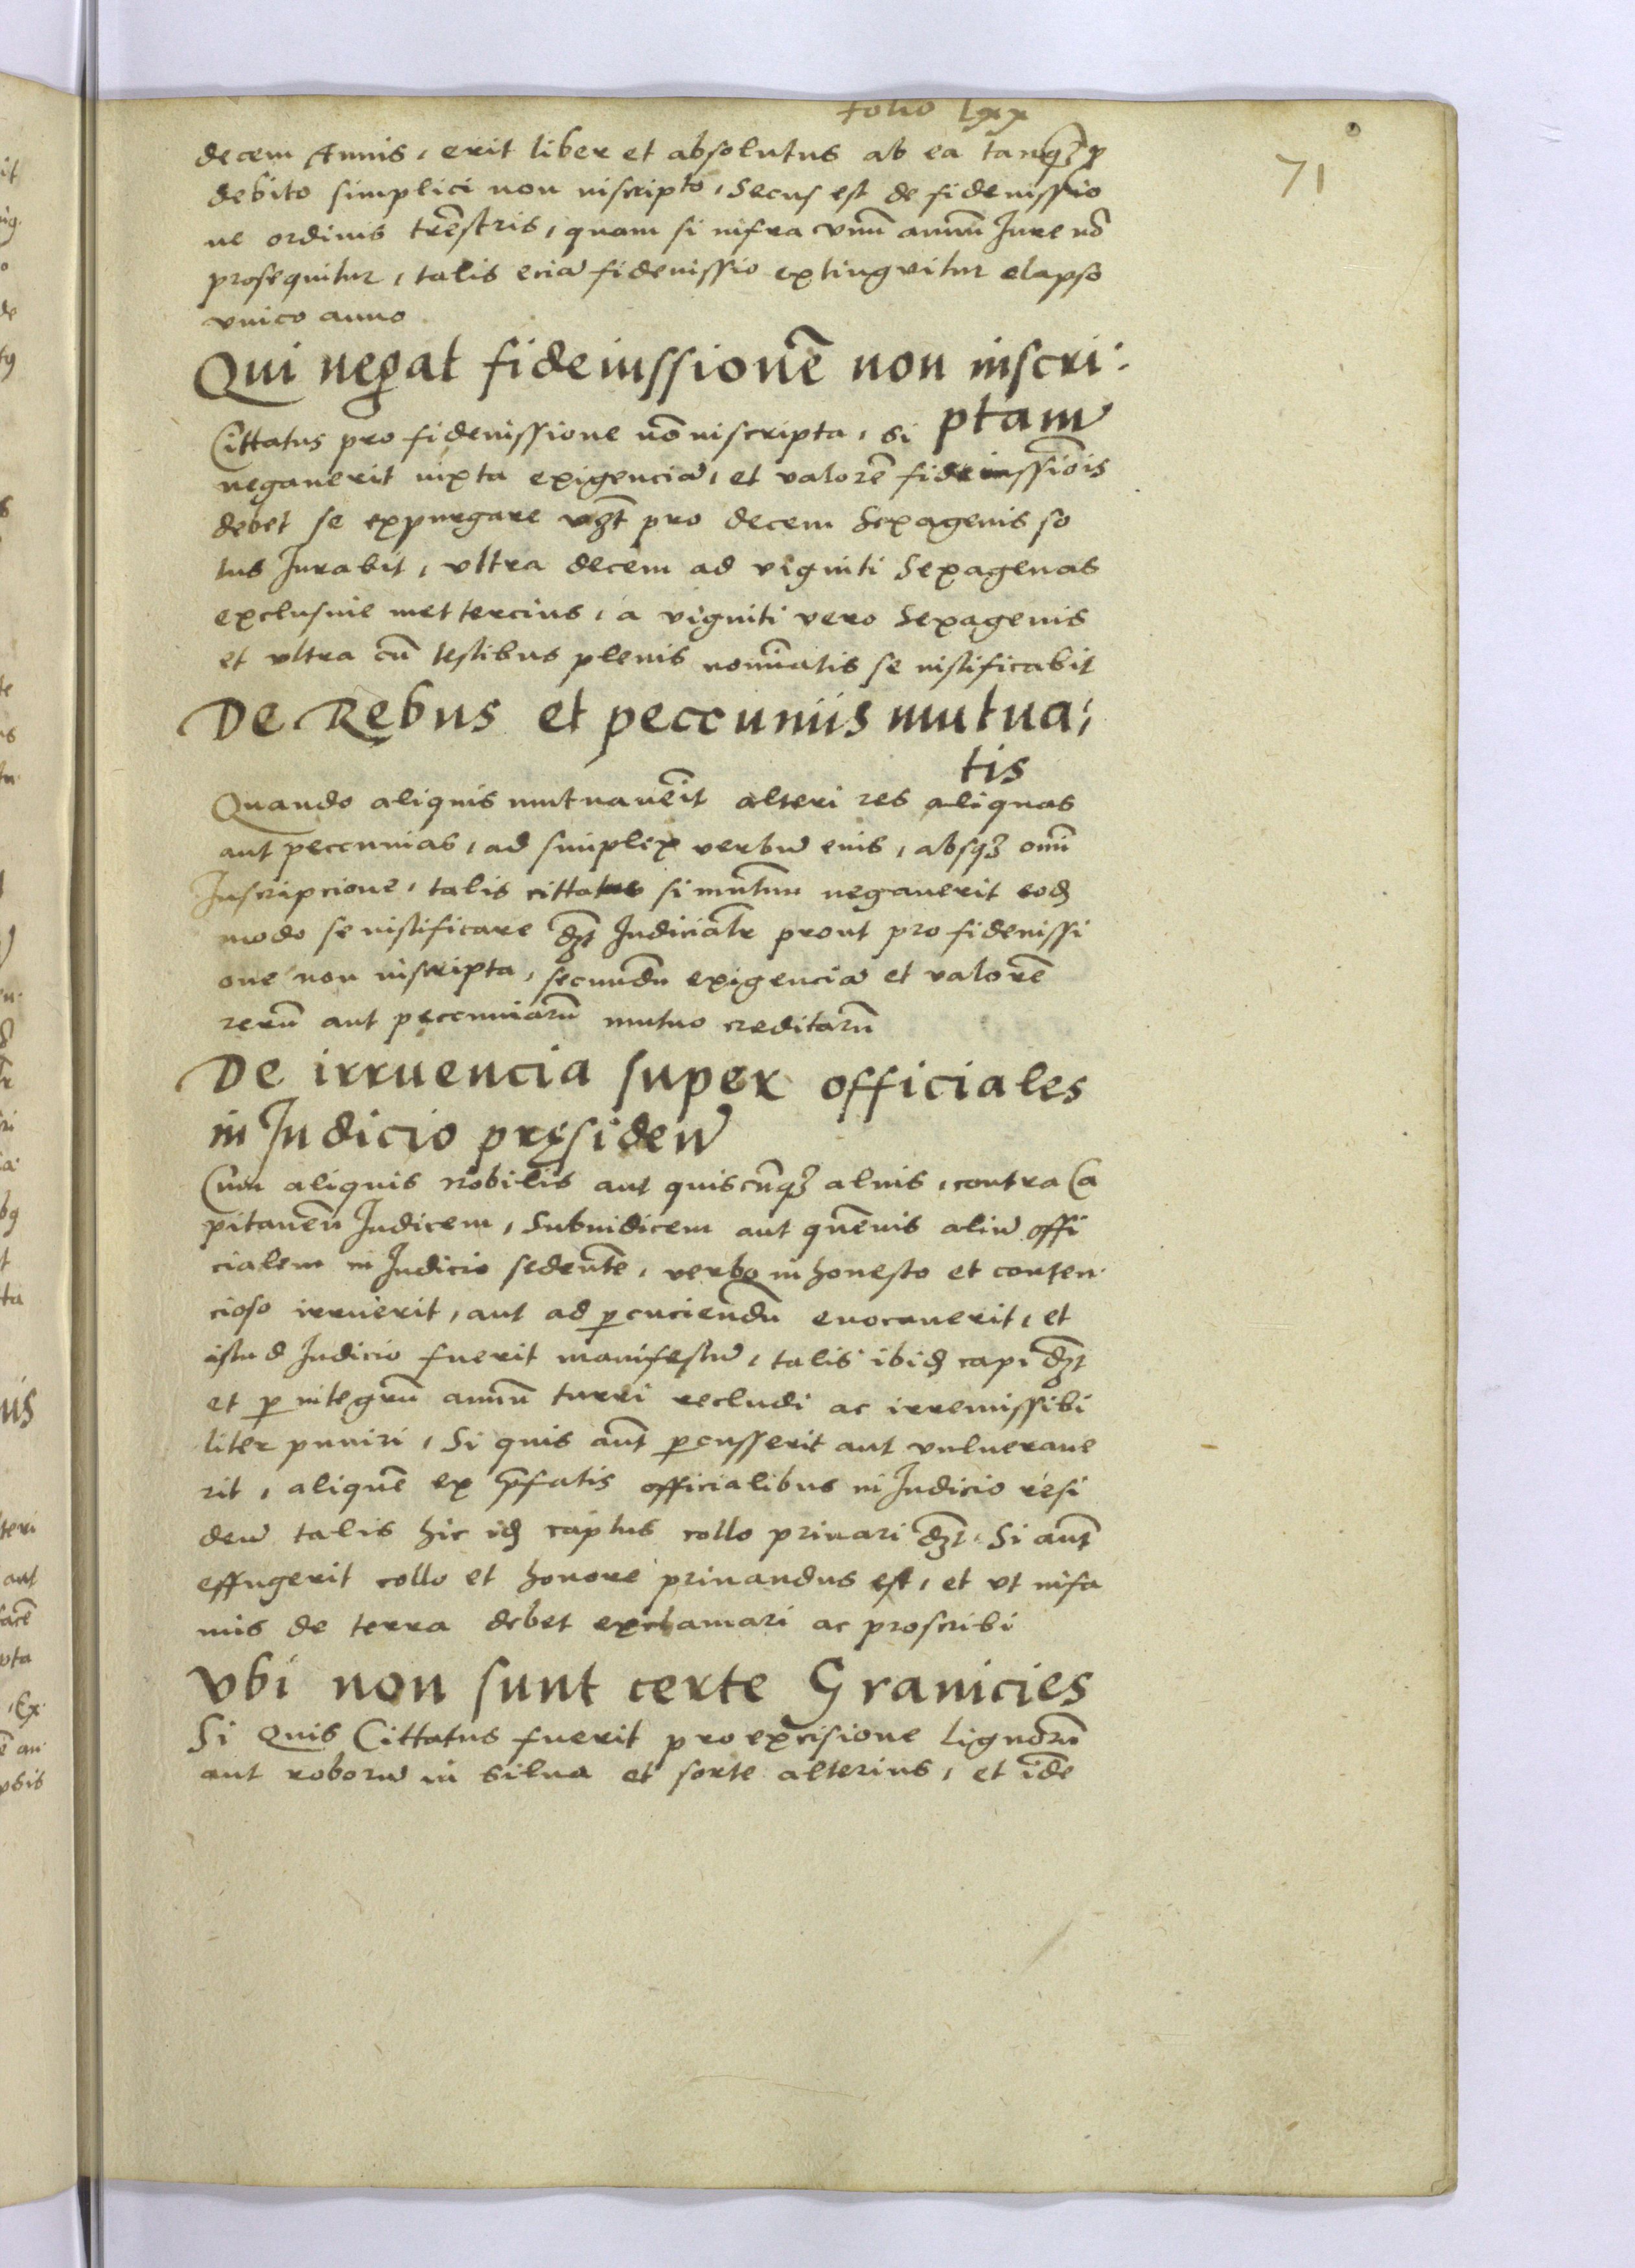 folio lxx
71
decem Annis, erit liber et absolutus ab ea tanq̃ꝫ ꝓ
debito simplici non inscripto, Secus est de fideiussio
ne ordinis trẽstris, quam si infra vnũ annũ Jure nõ
prosequitur, talis eciã fideiussio extinguitur elapso
vnico anno
Qui negat fideiussionẽ non inscri:
ptam
Cittatus pro fideiussione nõ inscripta, si
negauerit iuxta exigenciã, et valorẽ fideiussiõis
debet se expurgare vꝫt pro decem Sexagenis so
lus Jurabit, vltra decem ad viginti Sexagenas
exclusiue mettercius, a viginti vero Sexagenis
et vltra cũ testibus plenis nomĩatis se iustificabit
De Rębus et peccuniis mutua:
tis
Quando aliquis mutuauẽit alteri res aliquas
aut peccunias, ad simplex verbũ eius, absqꝫ omĩ
Inscripcione, talis cittatus si mutuũ negauerit eodꝫ
modo se iustificare dꝫt Judiciałr prout pro fideiussi
one non inscripta, secundũ exigenciã et valorẽ
rerũ aut peccuniarũ mutuo creditarũ
De irruencia super officiales
in Judicio pręsideñ
Cum aliquis nobilis aut quiscũqꝫ alius, contra Ca
pitaneũ Judicem, Subiudicem aut quẽuis aliũ offi
cialem in Judicio sedentẽ, verbo inhonesto et conten
cioso irruerit, aut ad ꝑcuciendũ euocauerit, et
istud Judicio fuerit manifestũ, talis ibidꝫ capi dꝫt
et ꝑ integrũ annũ turri recludi ac irremissibi
liter puniri, Si quis aũt ꝑcusserit aut vulneraue
rit, aliquẽ ex p̃fatis officialibus in Judicio resi
deñ talis hic idꝫ captus collo priuari dꝫt. Si aũt
effugerit collo et honore priuandus est, et vt infa
mis de terra debet exclamari ac proscribi
Vbi non sunt certe Granicies
Si Quis Cittatus fuerit pro excisione lignorũ
aut roborũ in silua et sorte alterius, et idẽ